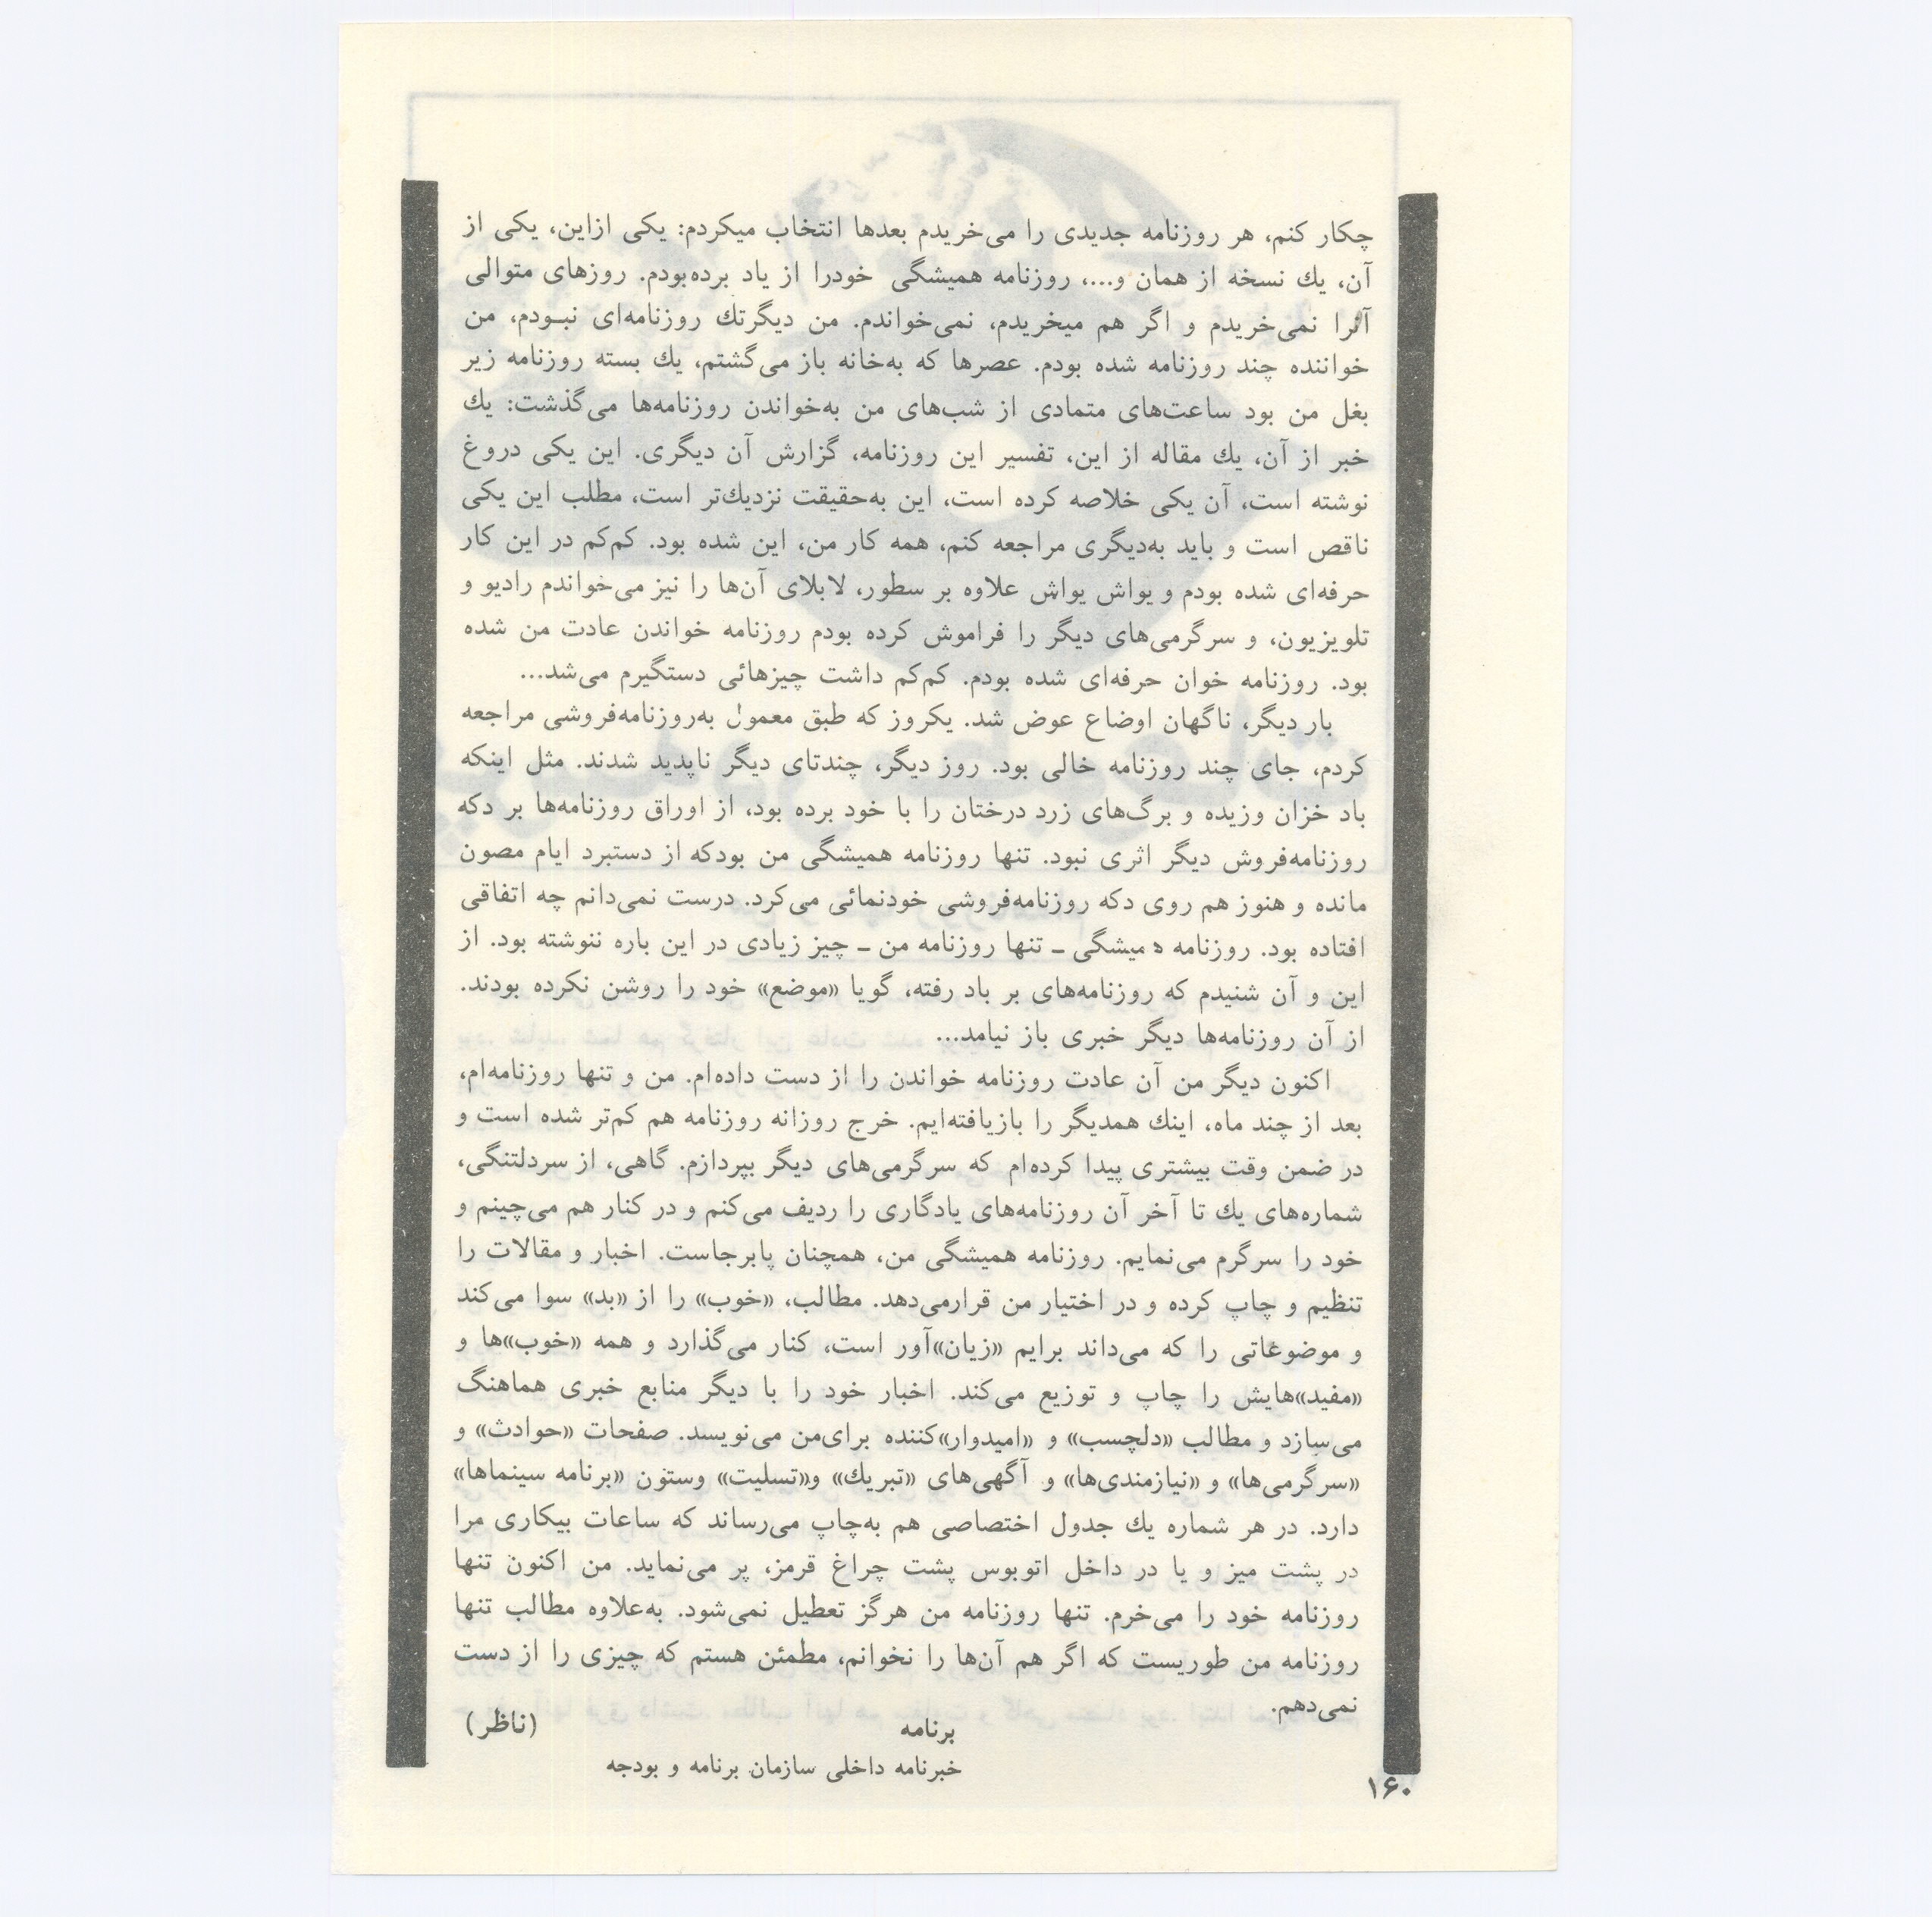 چکار کنم، هر روزنامه جدیدی را می‌خریدم بعدها انتخاب میکردم: یکی ازاین، یکی از
آن، یك نسخه از همان و...، روزنامه همیشگی خودرا از یاد برده‌بودم. روزهای متوالی
آنرا نمی‌خریدم و اگر هم میخریدم، نمی‌خواندم. من دیگرتك روزنامه‌ای نبـودم، من
خواننده چند روزنامه شده بودم. عصرها که به‌خانه باز می‌گشتم، یك بسته روزنامه زیر
بغل من بود ساعت‌های متمادی از شب‌های من به‌خواندن روزنامه‌ها می‌گذشت: یك
خبر از آن، یك مقاله از این، تفسیر این روزنامه، گزارش آن دیگری. این یکی دروغ
نوشته است، آن یکی خلاصه کرده است، این به‌حقیقت نزدیك‌تر است، مطلب این یکی
ناقص است و باید به‌دیگری مراجعه کنم، همه کار من، این شده بود. کم‌کم در این کار
حرفه‌ای شده بودم و یواش یواش علاوه بر سطور، لابلای آن‌ها را نیز می‌خواندم رادیو و
تلویزیون، و سرگرمی‌های دیگر را فراموش کرده بودم روزنامه خواندن عادت من شده
بود. روزنامه خوان حرفه‌ای شده بودم. کم‌کم داشت چیزهائی دستگیرم می‌شد...
بار دیگر، ناگهان اوضاع عوض شد. یکروز که طبق معمول به‌روزنامه‌فروشی مراجعه
کردم، جای چند روزنامه خالی بود. روز دیگر، چندتای دیگر ناپدید شدند. مثل اینکه
باد خزان وزیده و برگ‌های زرد درختان را با خود برده بود، از اوراق روزنامه‌ها بر دکه
روزنامه‌فروش دیگر اثری نبود. تنها روزنامه همیشگی من بودکه از دستبرد ایام مصون
مانده و هنوز هم روی دکه روزنامه‌فروشی خودنمائی می‌کرد. درست نمی‌دانم چه اتفاقی
افتاده بود. روزنامه همیشگی ـ تنها روزنامه من ـ چیز زیادی در این باره ننوشته بود. از
این و آن شنیدم که روزنامه‌های بر باد رفته، گویا «موضع» خود را روشن نکرده بودند.
از آن روزنامه‌ها دیگر خبری باز نیامد...
اکنون دیگر من آن عادت روزنامه خواندن را از دست داده‌ام. من و تنها روزنامه‌ام،
بعد از چند ماه، اینك همدیگر را بازیافته‌ایم. خرج روزانه روزنامه هم کم‌تر شده است و
در ضمن وقت بیشتری پیدا کرده‌ام که سرگرمی‌های دیگر بپردازم. گاهی، از سردلتنگی،
شماره‌های یك تا آخر آن روزنامه‌های یادگاری را ردیف می‌کنم و در کنار هم می‌چینم و
خود را سرگرم می‌نمایم. روزنامه همیشگی من، همچنان پابرجاست. اخبار و مقالات را
تنظیم و چاپ کرده و در اختیار من قرارمی‌دهد. مطالب، «خوب» را از «بد» سوا می‌کند
و موضوعاتی را که می‌داند برایم «زیان»آور است، کنار می‌گذارد و همه «خوب»ها و
«مفید»هایش را چاپ و توزیع می‌کند. اخبار خود را با دیگر منابع خبری هماهنگ
می‌سازد و مطالب «دلچسب» و «امیدوار»کننده برای‌من می‌نویسد. صفحات «حوادث» و
«سرگرمی‌ها» و «نیازمندی‌ها» و آگهی‌های «تبریك» و«تسلیت» وستون «برنامه سینماها»
دارد. در هر شماره یك جدول اختصاصی هم به‌چاپ می‌رساند که ساعات بیکاری مرا
در پشت میز و یا در داخل اتوبوس پشت چراغ قرمز، پر می‌نماید. من اکنون تنها
روزنامه خود را می‌خرم. تنها روزنامه من هرگز تعطیل نمی‌شود. به‌علاوه مطالب تنها
روزنامه من طوریست که اگر هم آن‌ها را نخوانم، مطمئن هستم که چیزی را از دست
نمی‌دهم.
برنامه (ناظر)
خبرنامه داخلی سازمان برنامه و بودجه
۱۶۰